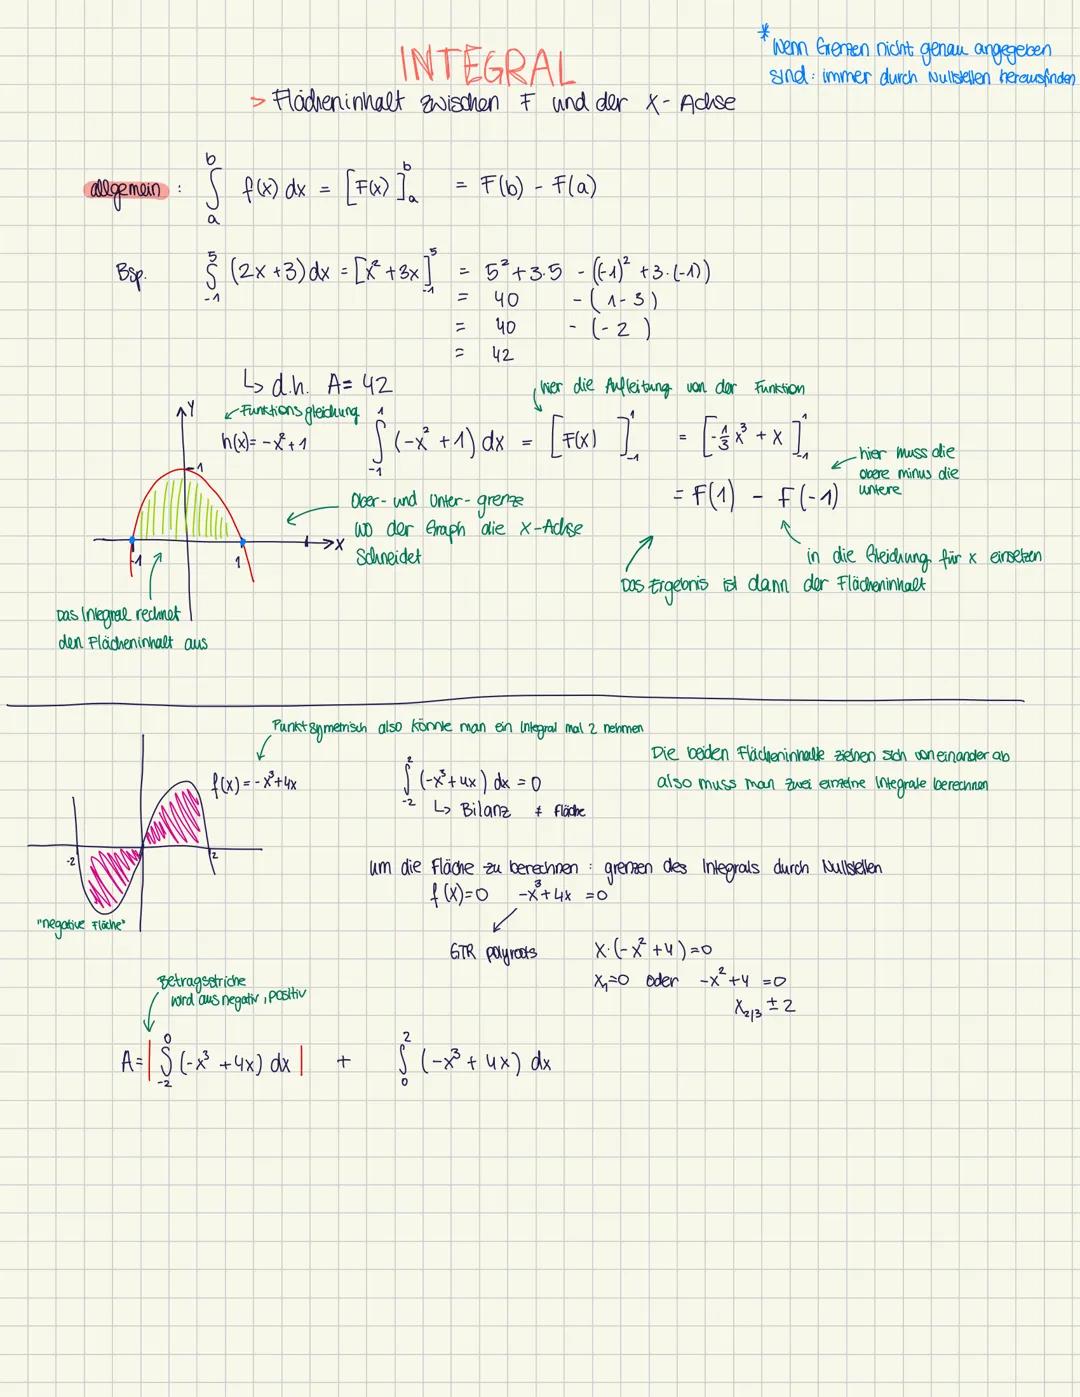 INTEGRAL
* Wenn Grenzen nicht genau angegeben
sind: immer durch Nullstellen herausfinden
> Flächeninhalt zwischen F und der X-Achse
allgemein : ∫_a^b f(x) dx = [F(x)]_a^b = F(b) - F(a)
Bsp. ∫_-1^5 (2x+3) dx = [x²+3x]_-1^5 = 5²+3·5 - ((-1)²+3·(-1))
= 40 - (1-3)
= 40 - (-2)
= 42
↳ d.h. A = 42
hier die Aufleitung von der Funktion
Funktionsgleichung
h(x) = -x²+1
∫_-1^1 (-x²+1) dx = [F(x)]_-1^1 = [-1/3 x³ + x]_-1^1
hier muss die
obere minus die
untere
= F(1) - F(-1)
Y
1
-1
1
X
Ober- und Unter-grenze
wo der Graph die X-Achse
Schneidet
in die Gleichung für x einsetzen
Das Ergebnis ist dann der Flächeninhalt
Das Integral rechnet
den Flächeninhalt aus
Punktsymetrisch also könnte man ein Integral mal 2 nehmen
f(x) = -x³+4x
∫_-2^2 (-x³+4x) dx = 0
↳ Bilanz ≠ Fläche
Die beiden Flächeninhalte ziehen sich voneinander ab
also muss man zwei einzelne Integrale berechnen
-2
2
"negative Fläche"
um die Fläche zu berechnen : grenzen des Integrals durch Nullstellen
f(x)=0 -x³+4x =0
GTR polyroots
x·(-x²+4)=0
x₁=0 oder -x²+4 =0
x₂|₃ ± 2
Betragsstriche
wird aus negativ, positiv
A = |∫_-2^0 (-x³+4x) dx| + ∫_0^2 (-x³+4x) dx